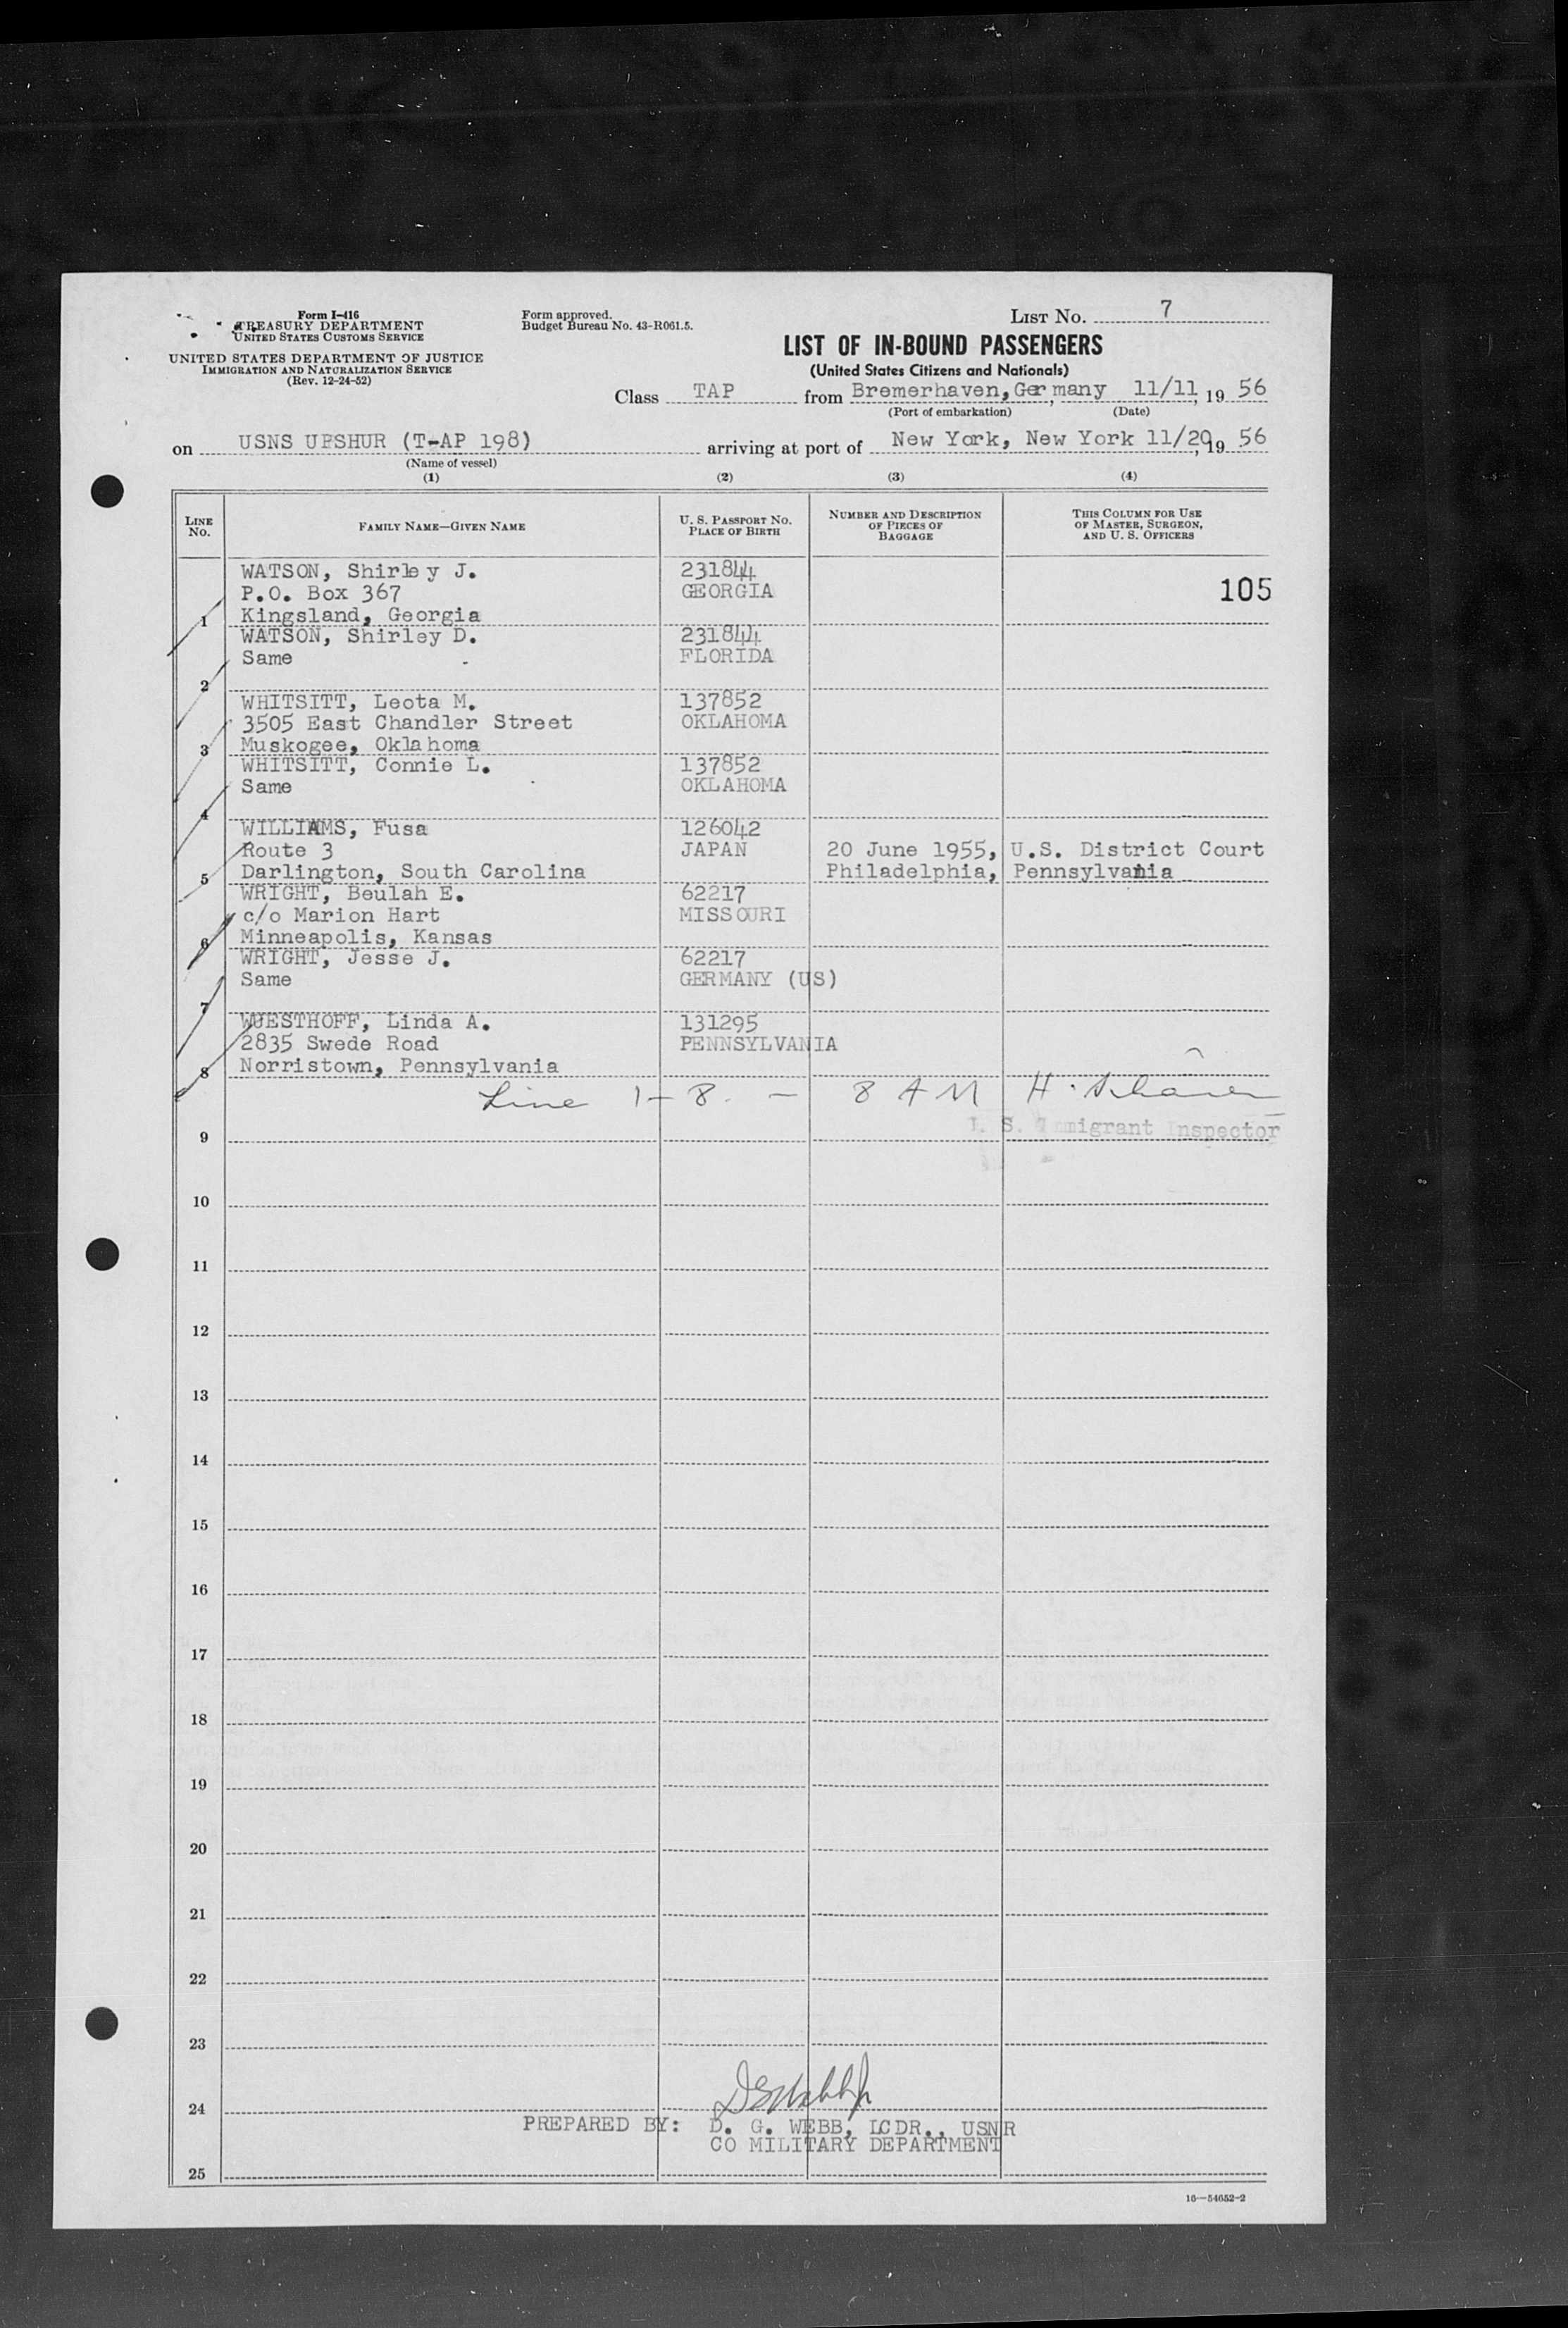 Form I-416
TREASURY DEPARTMENT
UNITED STATES CUSTOMS SERVICE
UNITED STATES DEPARTMENT OF JUSTICE
IMMIGRATION AND NATURALIZATION SERVICE
(Rev. 12-24-52)
Form approved.
Budget Bureau No. 43-R061.5.
LIST NO. 7
LIST OF IN-BOUND PASSENGERS
(United States Citizens and Nationals)
Class TAP from Bremerhaven, Germany 11/11, 19 56
(Port of embarkation) (Date)
on USNS UPSHUR (T-AP 198) arriving at port of New York, New York 11/20, 19 56
(Name of vessel)
(1) (2) (3) (4)
LINE NO. FAMILY NAME—GIVEN NAME U. S. PASSPORT NO. PLACE OF BIRTH NUMBER AND DESCRIPTION OF PIECES OF BAGGAGE THIS COLUMN FOR USE OF MASTER, SURGEON, AND U. S. OFFICERS
WATSON, Shirley J. 231844
P.O. Box 367 GEORGIA 105
1 Kingsland, Georgia
WATSON, Shirley D. 231844
Same FLORIDA
2
WHITSITT, Leota M. 137852
3505 East Chandler Street OKLAHOMA
3 Muskogee, Oklahoma
WHITSITT, Connie L. 137852
Same OKLAHOMA
4
WILLIAMS, Fusa 126042
Route 3 JAPAN 20 June 1955, U.S. District Court
5 Darlington, South Carolina Philadelphia, Pennsylvania
WRIGHT, Beulah E. 62217
c/o Marion Hart MISSOURI
6 Minneapolis, Kansas
WRIGHT, Jesse J. 62217
Same GERMANY (US)
7
WUESTHOFF, Linda A. 131295
2835 Swede Road PENNSYLVANIA
8 Norristown, Pennsylvania
Line 1-8. - 8 A M H.
9 S. Immigrant Inspector
10
11
12
13
14
15
16
17
18
19
20
21
22
23
24
PREPARED BY: D. G. WEBB, LCDR., USNR
CO MILITARY DEPARTMENT
25
16—54652-2